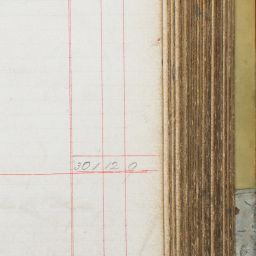 301 12 9